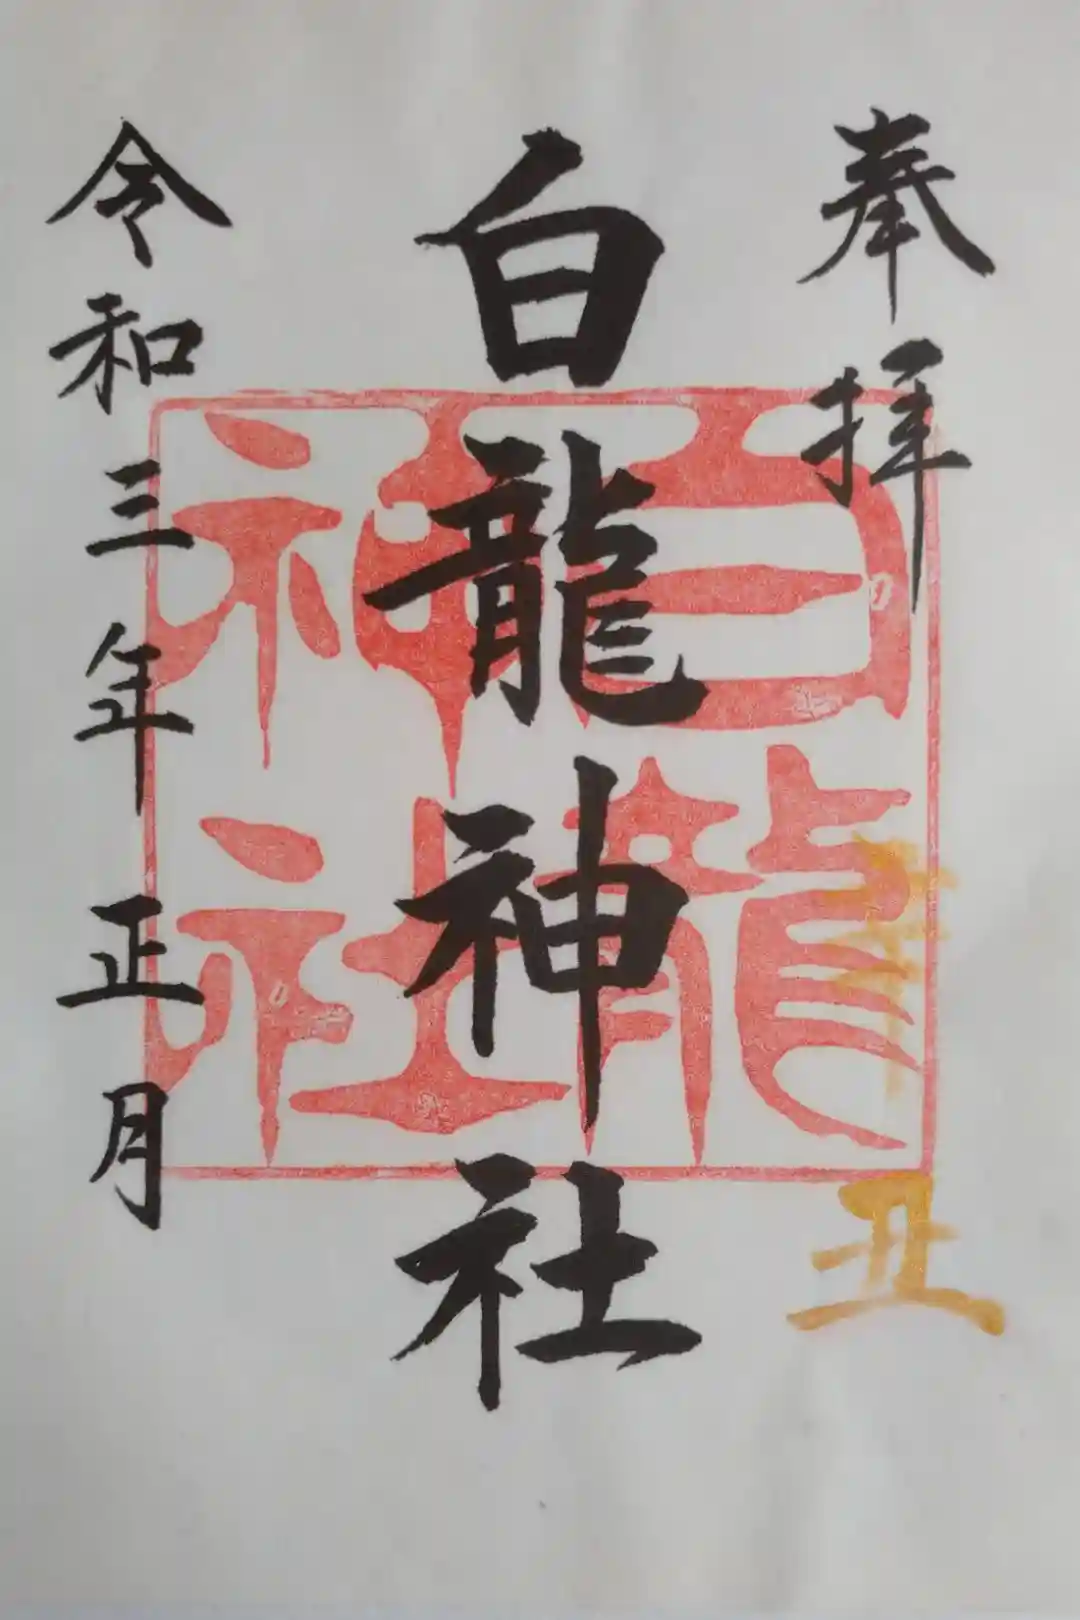 奉拝
辛丑
白龍神社
令和三年正月
白龍
神社